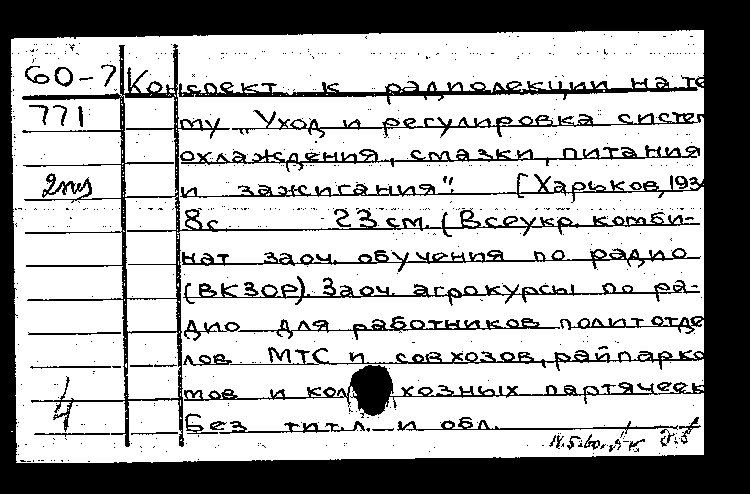 60-7 Конспект к радиолекции на те
771 му „Уход и регулировка систем
охлаждения, смазки, питания
2 и зажигания". [Харьков, 193
8с 23 см. (Всеукр. комби-
нат заоч. обучения по радио
(ВКЗОР). Заоч. агрокурсы по ра-
дио для работников политотде
лов МТС и совхозов, райпарко
4 тов и колхозных партячеек
Без тит. л. и обл.